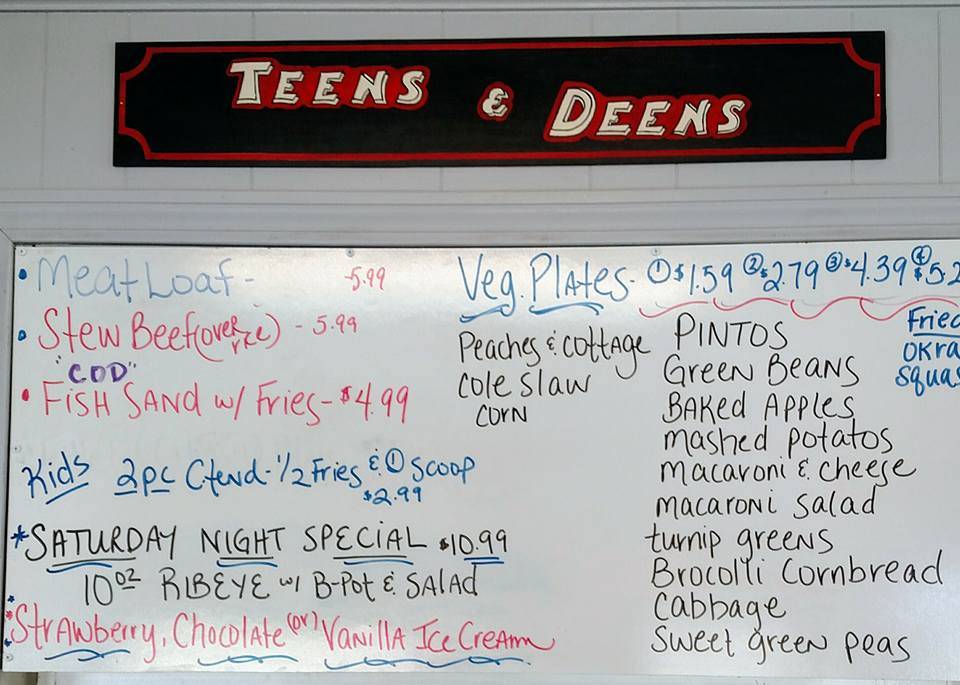 TEENS & DEENS
• Meat Loaf - -5.99
• Stew Beef (over rice) - 5.99
"COD"
• FISH SAND w/ Fries - $4.99
Kids 2pc Ctend - 1/2 Fries & ① Scoop
$2.99
*SATURDAY NIGHT SPECIAL $10.99
10oz RIBEYE w/ B-Pot & SALAD
*Strawberry, Chocolate (or) Vanilla Ice Cream
Veg. Plates - ① $1.59 ② $2.79 ③ $4.39 ④ $5.2
Peaches & Cottage
Cole Slaw
Corn
PINTOS
Green Beans
BAKED Apples
mashed potatos
macaroni & cheese
macaroni salad
turnip greens
Brocolli Cornbread
Cabbage
Sweet green peas
Fried
OKra
Squas